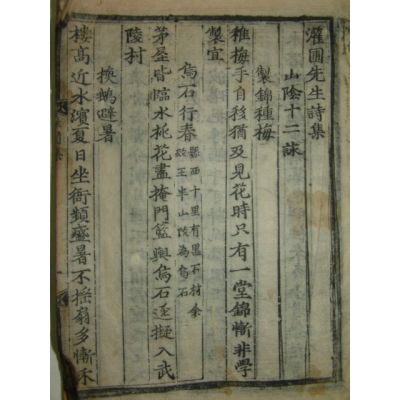 灌圃先生詩集
山陰十二詠
製錦種梅
稚梅手自移猶及見花時只有一堂錦慚非學
製宜
烏石行春 縣西十里有黑石村余
王半山陵為烏石
茅屋皆臨水桃花盡掩門籃輿烏石逕擬入武
陵村
換鵝避暑
樓高近水濱夏日坐衙頻盛暑不揺扇多慚禾